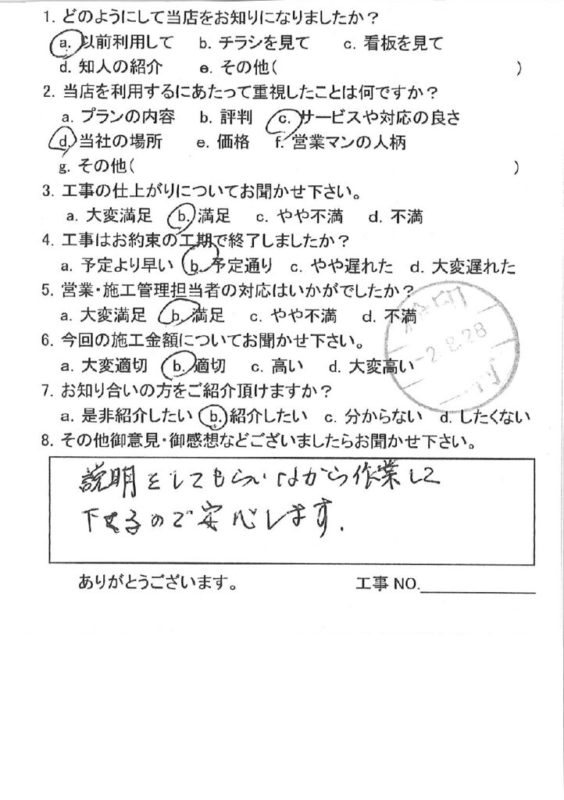 1. どのようにして当店をお知りになりましたか？
a. 以前利用して b. チラシを見て c. 看板を見て
d. 知人の紹介 e. その他( )
2. 当店を利用するにあたって重視したことは何ですか？
a. プランの内容 b. 評判 c. サービスや対応の良さ
d. 当社の場所 e. 価格 f. 営業マンの人柄
g. その他( )
3. 工事の仕上がりについてお聞かせ下さい。
a. 大変満足 b. 満足 c. やや不満 d. 不満
4. 工事はお約束の工期で終了しましたか？
a. 予定より早い b. 予定通り c. やや遅れた d. 大変遅れた
5. 営業・施工管理担当者の対応はいかがでしたか？
a. 大変満足 b. 満足 c. やや不満 d. 不満
6. 今回の施工金額についてお聞かせ下さい。
a. 大変適切 b. 適切 c. 高い d. 大変高い
-2.8.28
7. お知り合いの方をご紹介頂けますか？
a. 是非紹介したい b. 紹介したい c. 分からない d. したくない
8. その他御意見・御感想などございましたらお聞かせ下さい。
説明をしてもらいながら作業して
下さるので安心します.
ありがとうございます。 工事 NO.